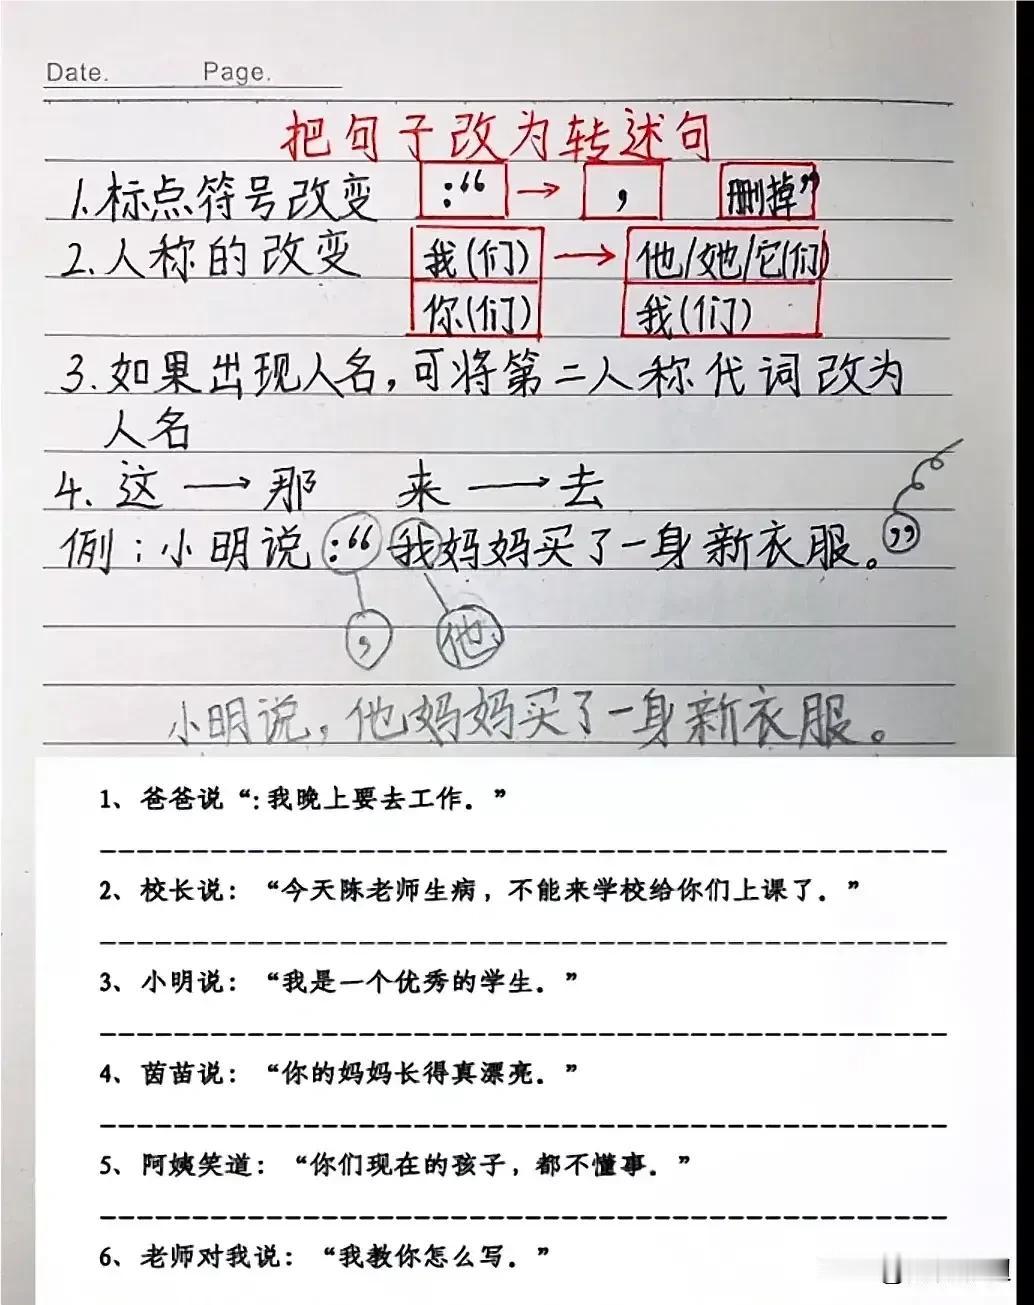 Date. Page.
把句子改为转述句
1.标点符号改变 :“ → , 删掉”
2.人称的改变 我(们) → 他/她/它(们)
你(们) 我(们)
3.如果出现人名,可将第二人称代词改为
人名
4.这 → 那 来 → 去
例:小明说:“我妈妈买了一身新衣服。”
, 他
小明说,他妈妈买了一身新衣服。
1、爸爸说“:我晚上要去工作.”
2、校长说:“今天陈老师生病,不能来学校给你们上课了.”
3、小明说:“我是一个优秀的学生.”
4、茵苗说:“你的妈妈长得真漂亮.”
5、阿姨笑道:“你们现在的孩子,都不懂事.”
6、老师对我说:“我教你怎么写.”